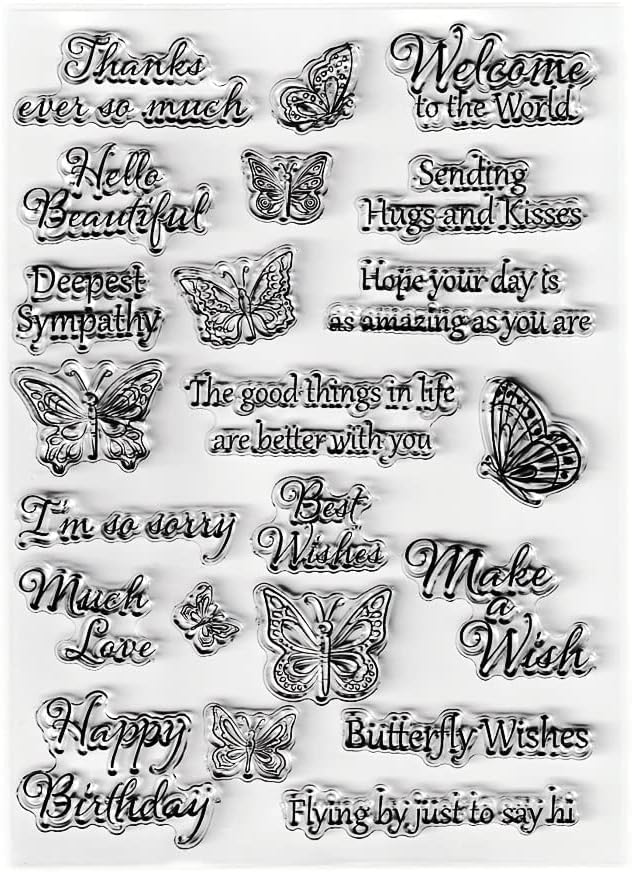 Thanks
ever so much
Welcome
to the World
Hello
Beautiful
Sending
Hugs and Kisses
Deepest
Sympathy
Hope your day is
as amazing as you are
The good things in life
are better with you
I'm so sorry
Best
Wishes
Make
a
Wish
Much
Love
Happy
Birthday
Butterfly Wishes
Flying by just to say hi